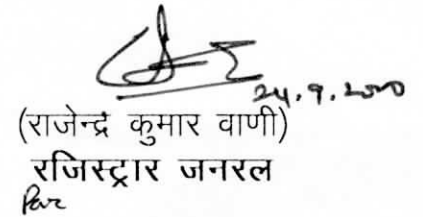 24.9.2020
(राजेन्द्र कुमार वाणी)
रजिस्ट्रार जनरल